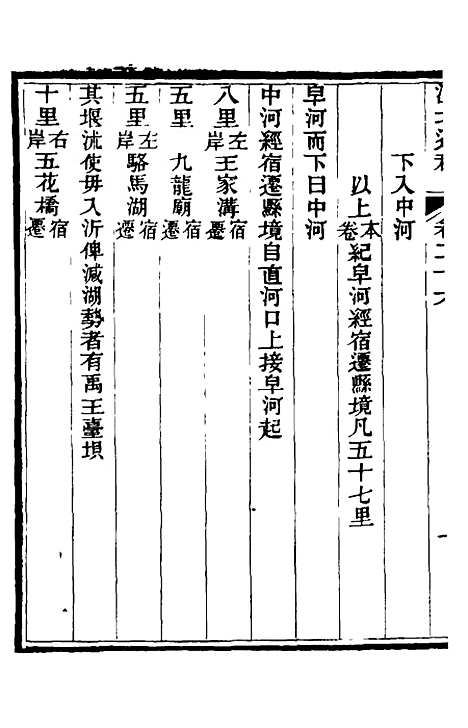 下入中河
以上本卷紀皁河經宿遷縣境凡五十七里
皁河而下曰中河
中河經宿遷縣境自直河口上接皁河起
八里左岸王家溝宿遷
五里 九龍廟宿遷
五里左岸駱馬湖宿遷
其堰流使毋入沂俾減湖勢者有禹王臺壩
十里右岸五花橋宿遷